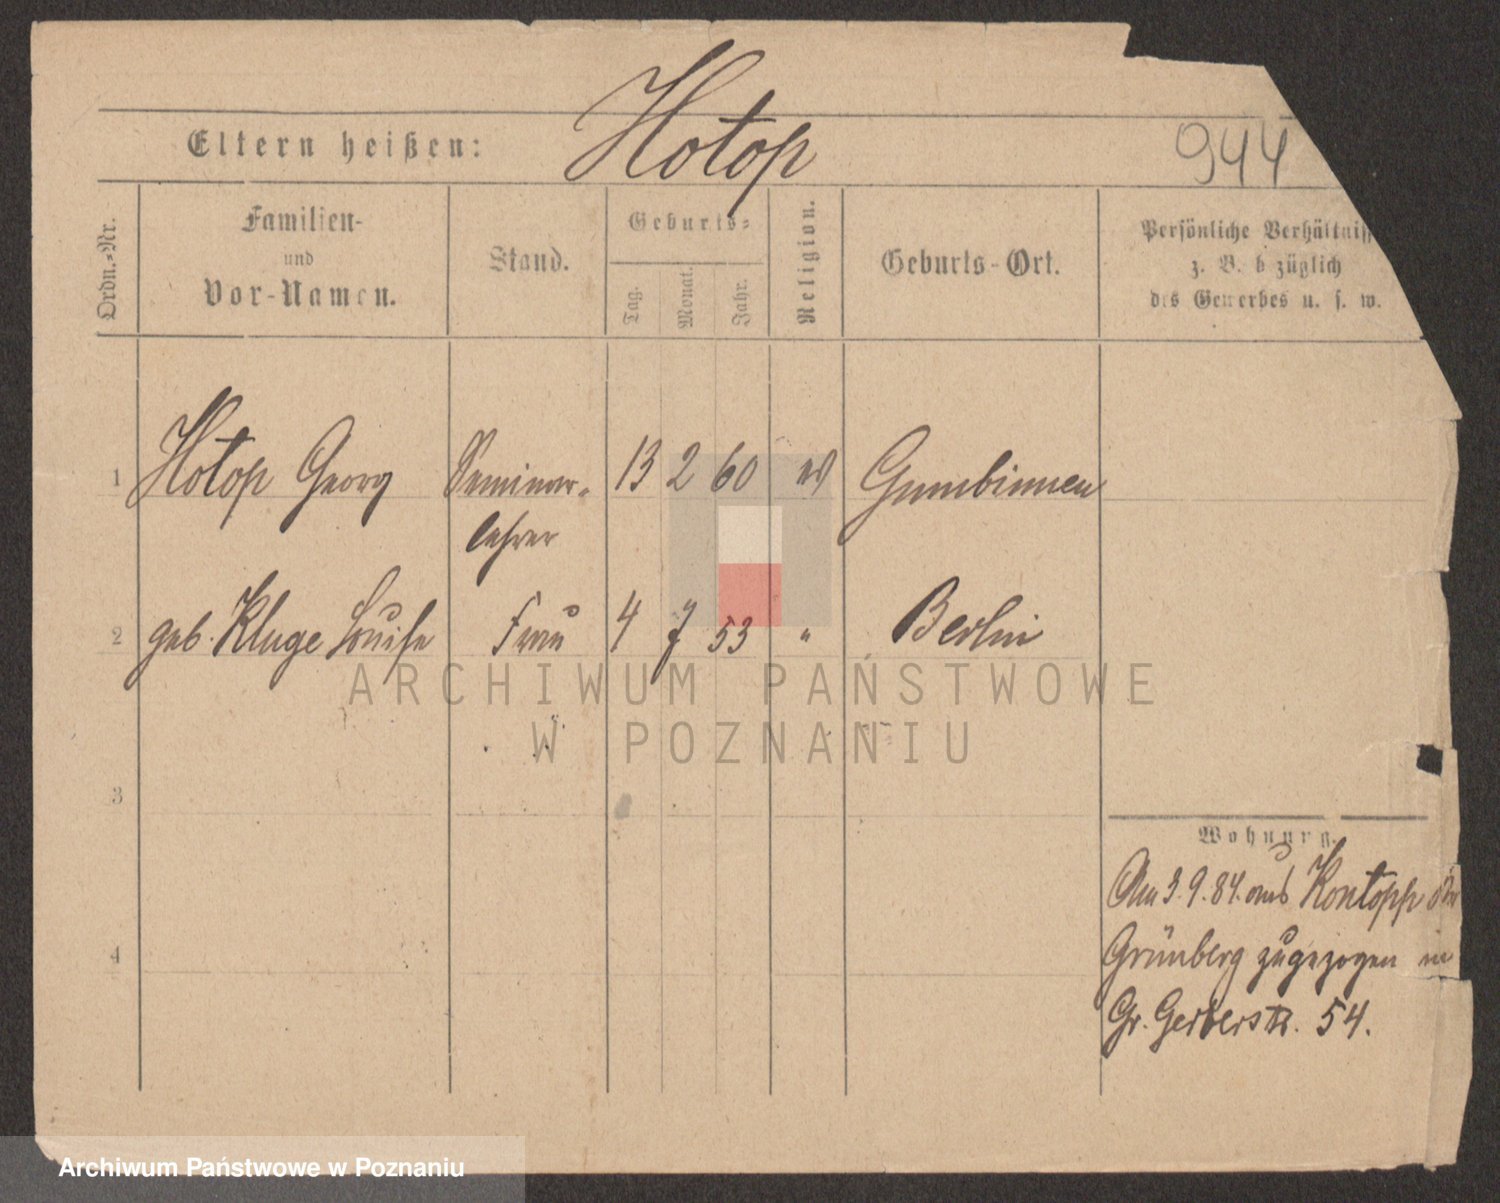 Hotop
Eltern heißen:
944
Ordn.-Nr.
Familien-
und
Vor-Namen.
Stand.
Geburts-
Tag.
Monat.
Jahr.
Religion.
Geburts-Ort.
Persönliche Verhältniss
z. B. bezüglich
des Gewerbes u. s. w.
1 Hotop Georg Seminar- 13 2 60 ev Gumbinnen
lehrer
2 geb. Kluge Louise Frau 4 7 53 " Berlin
ARCHIWUM PAŃSTWOWE
W POZNANIU
3
Wohnung.
Am 3.9.84. aus Kontopp
4
Grünberg zugezogen
Gr. Gerberstr. 54.
Archiwum Państwowe w Poznaniu